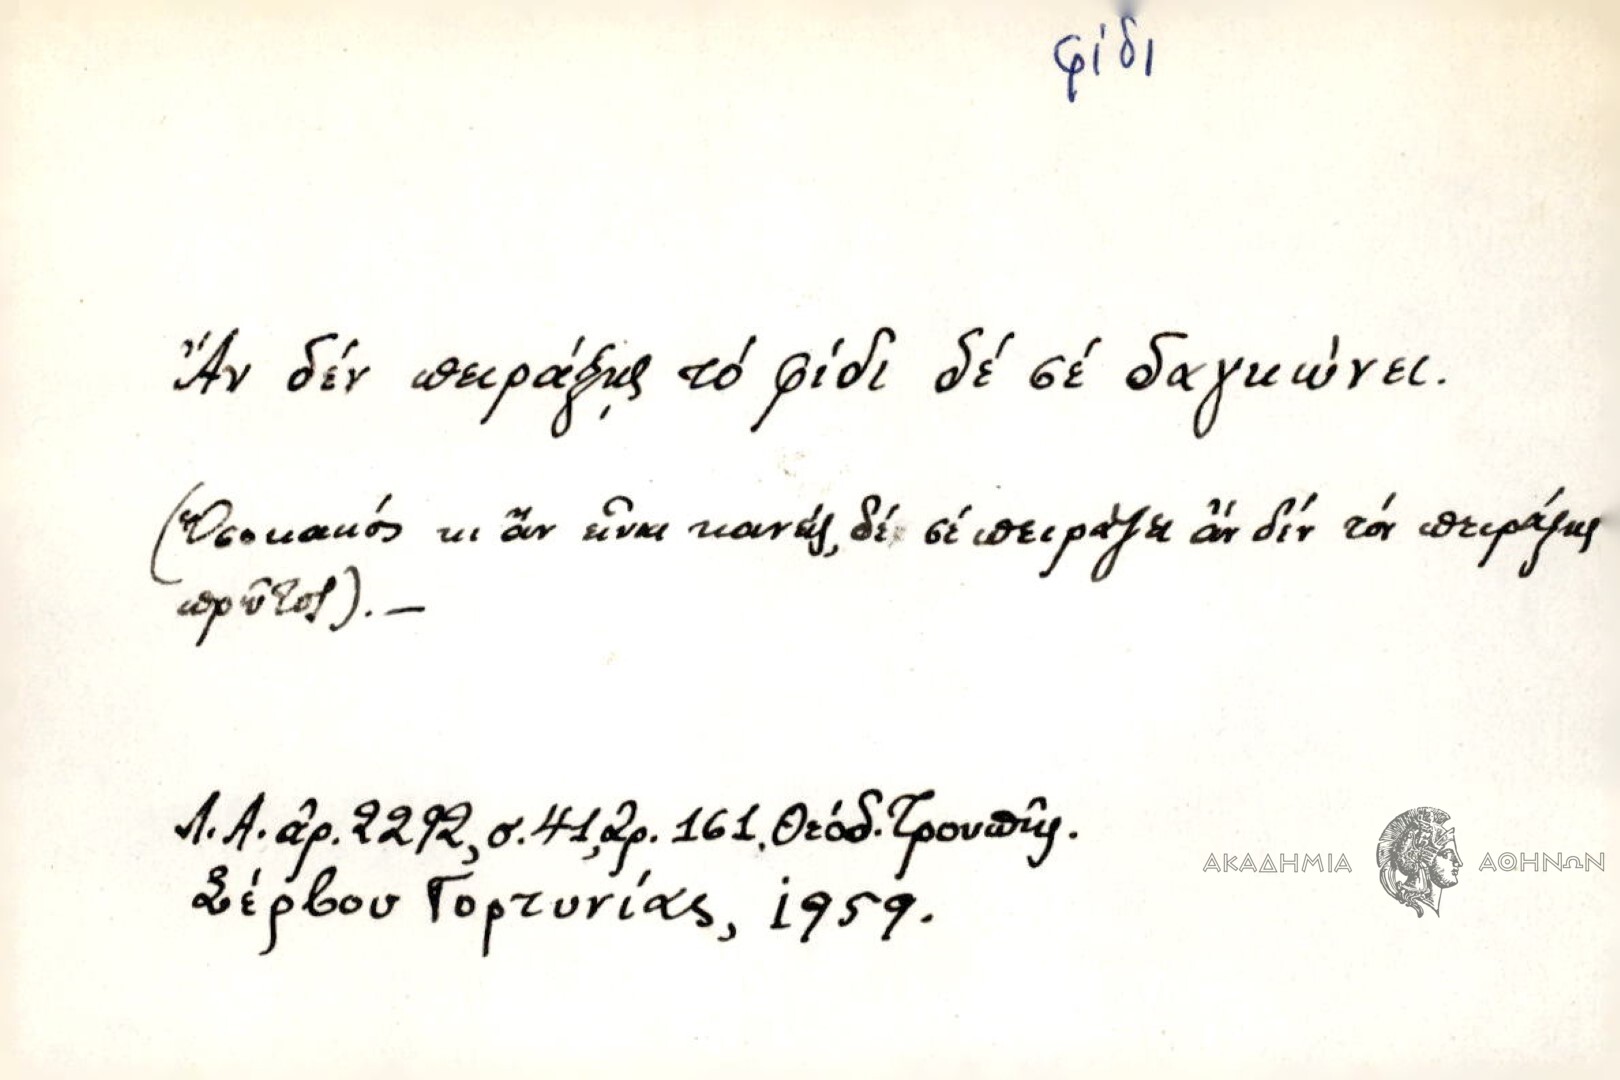 φίδι
Ἄν δέν πειράξῃς τό φίδι δέ σέ δαγκώνει.
(Ὅσο κακός κι ἄν εἶναι κανείς, δέ σέ πειράζει ἄν δέν τόν πειράξῃς
πρῶτος). —
Λ. Α. ἀρ. 2292, σ. 41, ἀρ. 161, Θεόδ. Τρουπῆς.
Σέρβου Γορτυνίας, 1959.
ΑΚΑΔΗΜΙΑ ΑΘΗΝΩΝ